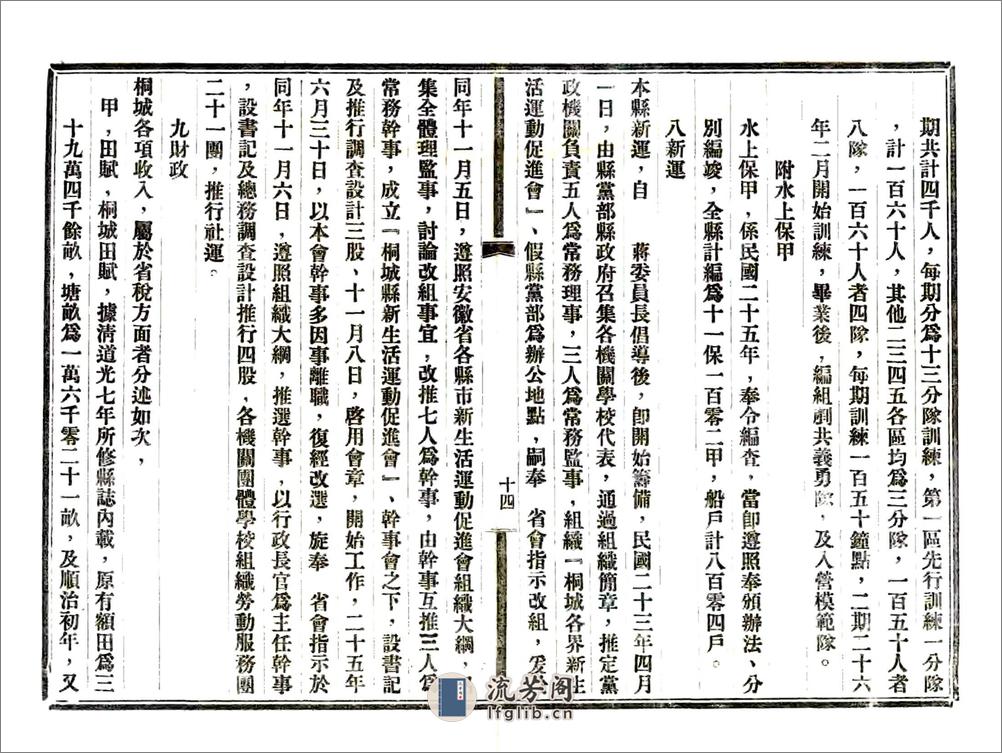 期共計四千人，每期分爲十三分隊訓練，第一區先行訓練一分隊
，計一百六十人，其他二三四五各區均爲三分隊，一百五十人者
八隊，一百六十人者四隊，每期訓練一百五十鐘點，二期二十六
年二月開始訓練，畢業後，編組剷共義勇隊，及入營模範隊。
附水上保甲
水上保甲，係民國二十五年，奉令編查，當卽遵照奉頒辦法、分
別編竣，全縣計編爲十一保一百零二甲，船戶計八百零四戶。
八新運
本縣新運，自　蔣委員長倡導後，卽開始籌備，民國二十三年四月
一日，由縣黨部縣政府召集各機關學校代表，通過組織簡章，推定黨
政機關負責五人爲常務理事，三人爲常務監事，組織「桐城各界新生
活運動促進會」、假縣黨部爲辦公地點，嗣奉　省會指示改組，
十四
同年十一月五日，遵照安徽省各縣市新生活運動促進會組織大綱，
集全體理監事，討論改組事宜，改推七人爲幹事，由幹事互推三人爲
常務幹事，成立「桐城縣新生活運動促進會」、幹事會之下，設書記
及推行調查設計三股、十一月八日，啓用會章，開始工作，二十五年
六月三十日，以本會幹事多因事離職，復經改選，旋奉　省會指示於
同年十一月六日，遵照組織大綱，推選幹事，以行政長官爲主任幹事
，設書記及總務調查設計推行四股，各機關團體學校組織勞動服務團
二十一團，推行社運。
九財政
桐城各項收入，屬於省稅方面者分述如次，
甲，田賦，桐城田賦，據淸道光七年所修縣誌內載，原有額田爲三
十九萬四千餘畝，塘畝爲一萬六千零二十一畝，及順治初年，又
流芳閣
lfglib.cn